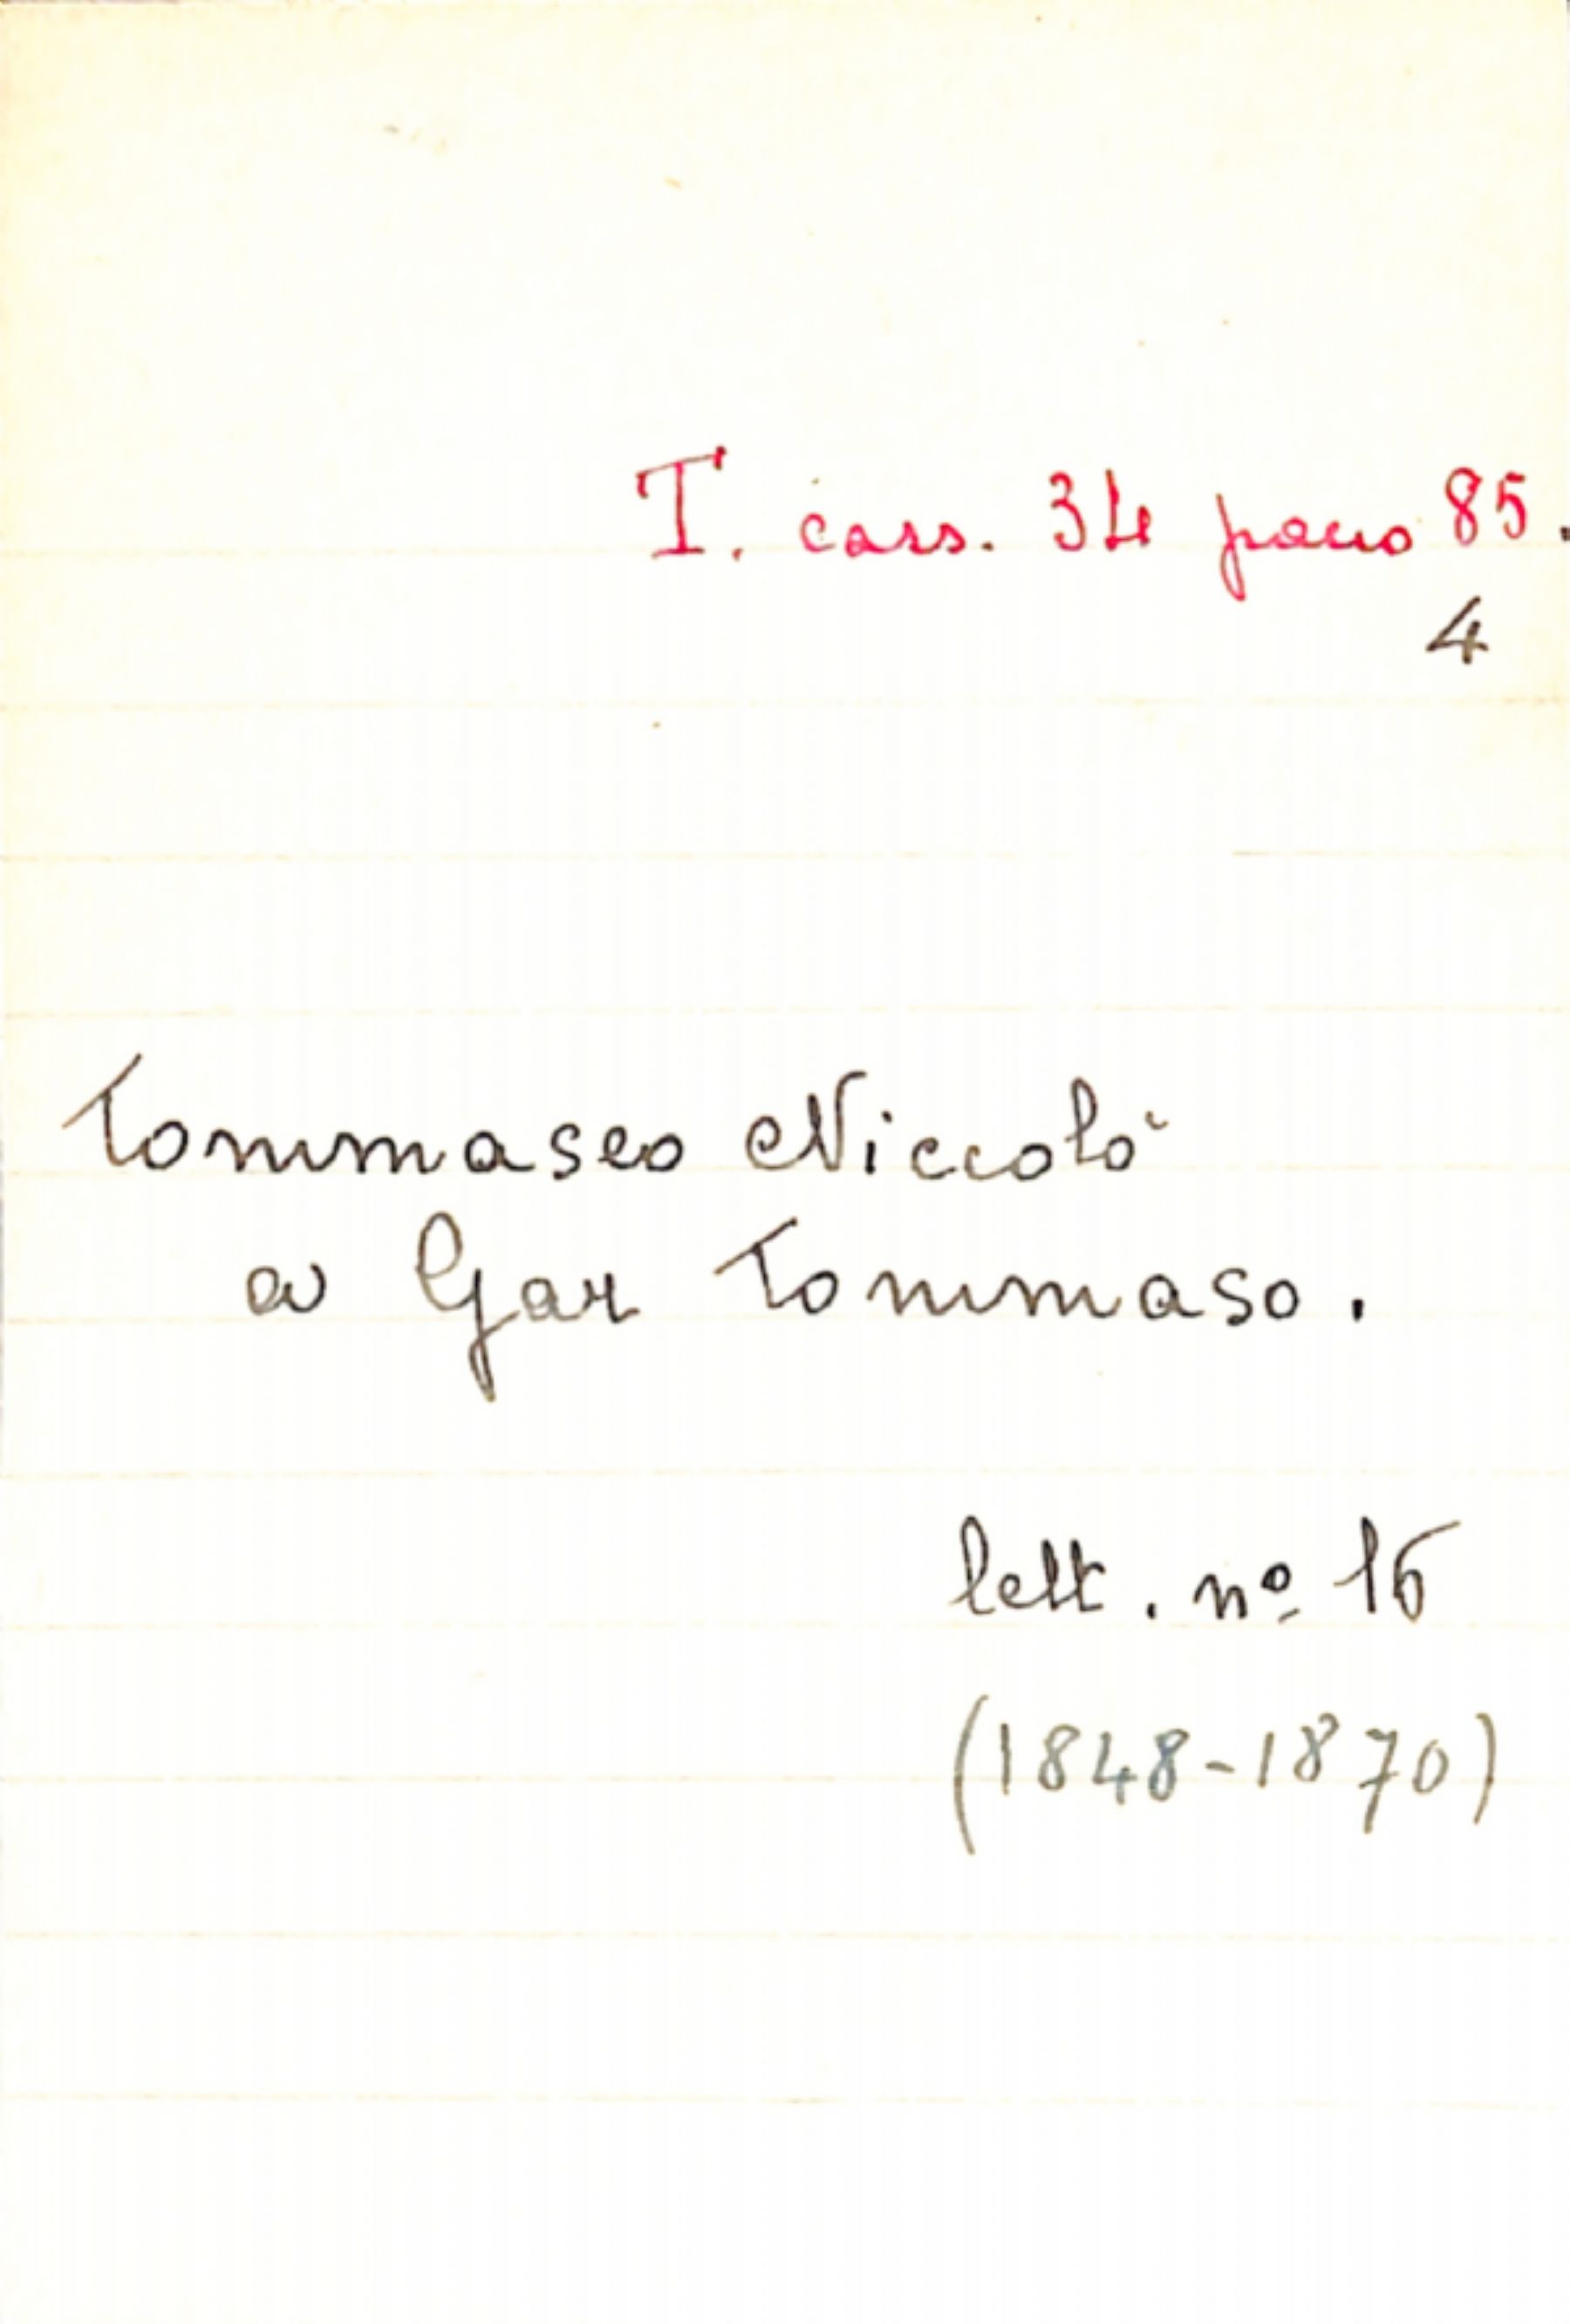 T. cass. 34 pacco 85.
4
Tommaseo Niccolò
a Gar Tommaso.
lett. nº 16
(1848-1870)